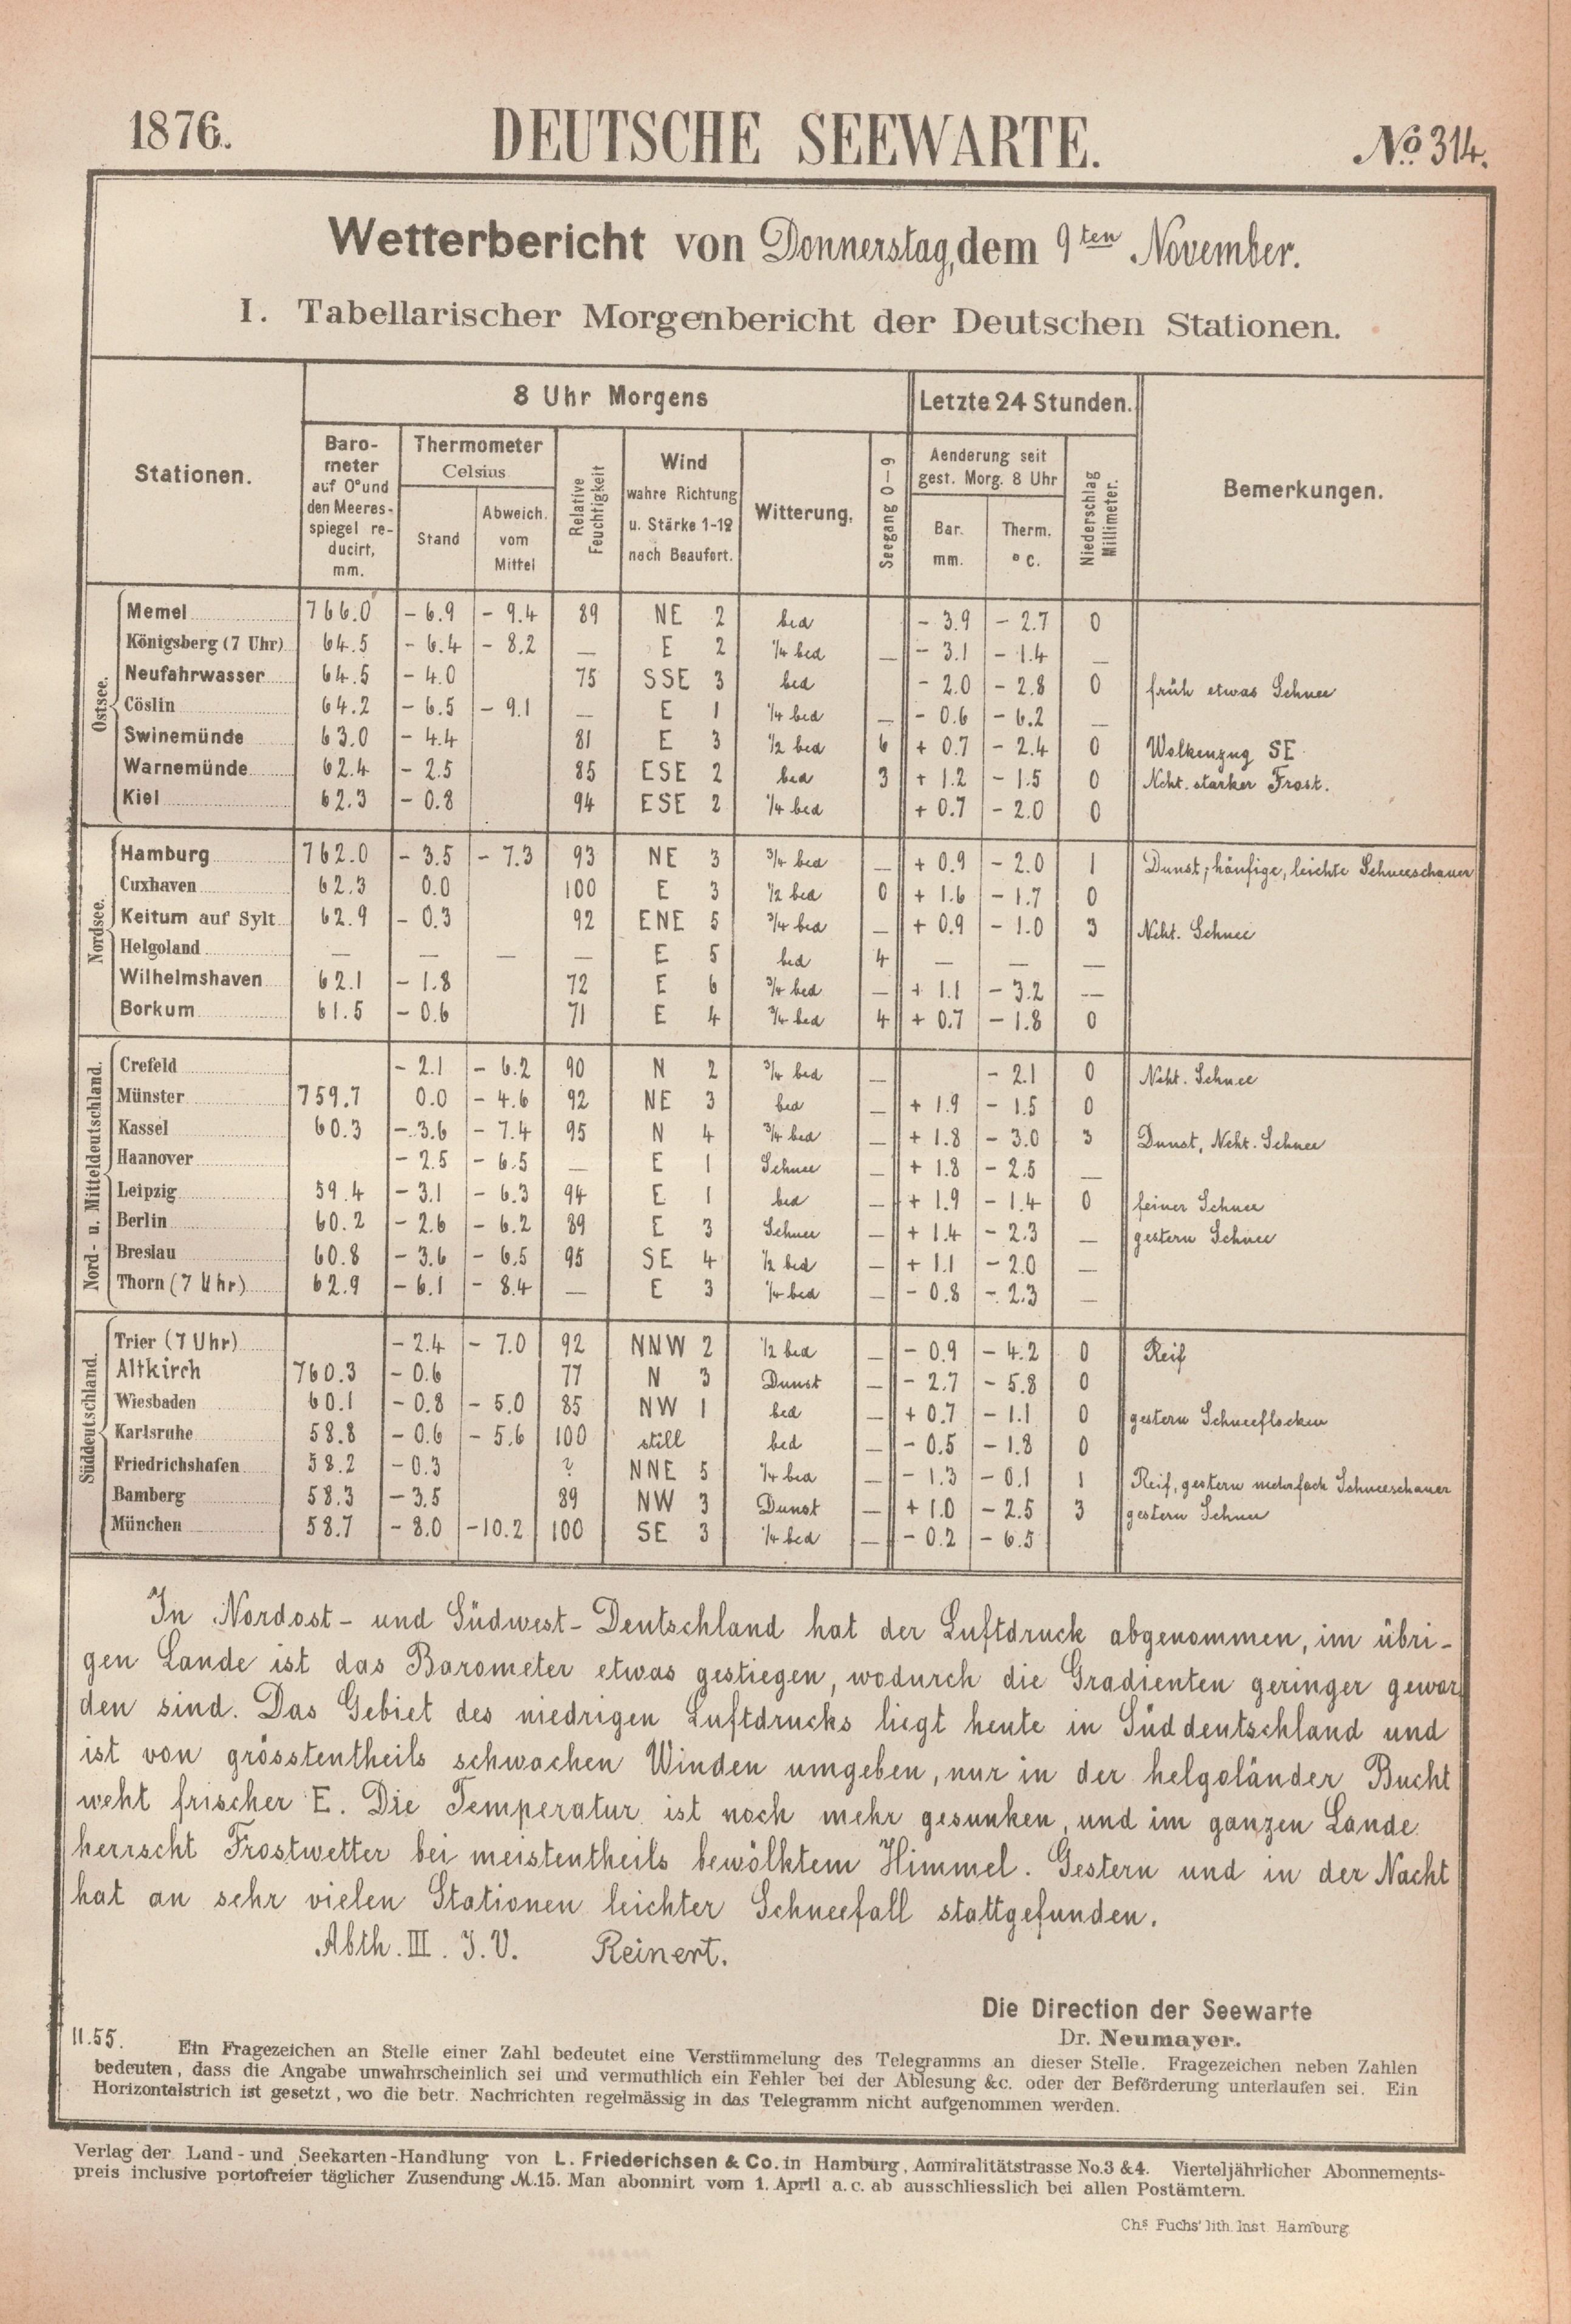 1876. DEUTSCHE SEEWARTE. No. 314.
Wetterbericht von Donnerstag, dem 9ten November.
I. Tabellarischer Morgenbericht der Deutschen Stationen.
8 Uhr Morgens Letzte 24 Stunden.
Stationen. Barometer auf 0° und den Meeresspiegel reducirt, mm. Thermometer Celsius Stand Abweich. vom Mittel Relative Feuchtigkeit Wind wahre Richtung u. Stärke 1-12 nach Beaufort. Witterung. Seegang 0-9 Aenderung seit gest. Morg. 8 Uhr Bar. mm. Therm. °C. Niederschlag Millimeter. Bemerkungen.
Ostsee.
Memel 766.0 - 6.9 - 9.4 89 NE 2 bed - 3.9 - 2.7 0
Königsberg (7 Uhr) 64.5 - 6.4 - 8.2 — E 2 ¼ bed — - 3.1 - 1.4 —
Neufahrwasser 64.5 - 4.0 75 SSE 3 bed - 2.0 - 2.8 0 früh etwas Schnee
Cöslin 64.2 - 6.5 - 9.1 — E 1 ¼ bed — - 0.6 - 6.2 —
Swinemünde 63.0 - 4.4 81 E 3 ½ bed 6 + 0.7 - 2.4 0 Wolkenzug SE
Warnemünde 62.4 - 2.5 85 ESE 2 bed 3 + 1.2 - 1.5 0 Ncht. starker Frost.
Kiel 62.3 - 0.8 94 ESE 2 ¼ bed + 0.7 - 2.0 0
Nordsee.
Hamburg 762.0 - 3.5 - 7.3 93 NE 3 ¾ bed — + 0.9 - 2.0 1 Dunst, häufige, leichte Schneeschauer
Cuxhaven 62.3 0.0 100 E 3 ½ bed 0 + 1.6 - 1.7 0
Keitum auf Sylt 62.9 - 0.3 92 ENE 5 ¾ bed — + 0.9 - 1.0 3 Ncht. Schnee
Helgoland — — — — E 5 bed 4 — — —
Wilhelmshaven 62.1 - 1.8 72 E 6 ¾ bed — + 1.1 - 3.2 —
Borkum 61.5 - 0.6 71 E 4 ¾ bed 4 + 0.7 - 1.8 0
Nord- u. Mitteldeutschland.
Crefeld - 2.1 - 6.2 90 N 2 ¾ bed — - 2.1 0 Ncht. Schnee
Münster 759.7 0.0 - 4.6 92 NE 3 bed — + 1.9 - 1.5 0
Kassel 60.3 - 3.6 - 7.4 95 N 4 ¾ bed — + 1.8 - 3.0 3 Dunst, Ncht. Schnee
Hannover - 2.5 - 6.5 — E 1 Schnee — + 1.8 - 2.5 —
Leipzig 59.4 - 3.1 - 6.3 94 E 1 bed — + 1.9 - 1.4 0 feiner Schnee
Berlin 60.2 - 2.6 - 6.2 89 E 3 Schnee — + 1.4 - 2.3 — gestern Schnee
Breslau 60.8 - 3.6 - 6.5 95 SE 4 ½ bed — + 1.1 - 2.0 —
Thorn (7 Uhr) 62.9 - 6.1 - 8.4 — E 3 ¼ bed — - 0.8 - 2.3 —
Süddeutschland.
Trier (7 Uhr) - 2.4 - 7.0 92 NNW 2 ½ bed — - 0.9 - 4.2 0 Reif
Altkirch 760.3 - 0.6 77 N 3 Dunst — - 2.7 - 5.8 0
Wiesbaden 60.1 - 0.8 - 5.0 85 NW 1 bed — + 0.7 - 1.1 0 gestern Schneeflocken
Karlsruhe 58.8 - 0.6 - 5.6 100 still bed — - 0.5 - 1.8 0
Friedrichshafen 58.2 - 0.3 ? NNE 5 ¼ bed — - 1.3 - 0.1 1 Reif, gestern mehrfach Schneeschauer
Bamberg 58.3 - 3.5 89 NW 3 Dunst — + 1.0 - 2.5 3 gestern Schnee
München 58.7 - 8.0 - 10.2 100 SE 3 ¼ bed — - 0.2 - 6.5
In Nordost- und Südwest-Deutschland hat der Luftdruck abgenommen, im übri-
gen Lande ist das Barometer etwas gestiegen, wodurch die Gradienten geringer gewor
den sind. Das Gebiet des niedrigen Luftdrucks liegt heute in Süddeutschland und
ist von grösstentheils schwachen Winden umgeben, nur in der helgoländer Bucht
weht frischer E. Die Temperatur ist noch mehr gesunken, und im ganzen Lande
herrscht Frostwetter bei meistentheils bewölktem Himmel. Gestern und in der Nacht
hat an sehr vielen Stationen leichter Schneefall stattgefunden.
Abth. III. I.V. Reinert.
Die Direction der Seewarte
Dr. Neumayer.
11.55. Ein Fragezeichen an Stelle einer Zahl bedeutet eine Verstümmelung des Telegramms an dieser Stelle. Fragezeichen neben Zahlen
bedeuten, dass die Angabe unwahrscheinlich sei und vermuthlich ein Fehler bei der Ablesung &c. oder der Beförderung unterlaufen sei. Ein
Horizontalstrich ist gesetzt, wo die betr. Nachrichten regelmässig in das Telegramm nicht aufgenommen werden.
Verlag der Land- und Seekarten-Handlung von L. Friederichsen & Co. in Hamburg, Admiralitätstrasse No. 3 & 4. Vierteljährlicher Abonnements-
preis inclusive portofreier täglicher Zusendung M. 15. Man abonnirt vom 1. April a. c. ab ausschliesslich bei allen Postämtern.
Chs Fuchs' lith. Inst. Hamburg